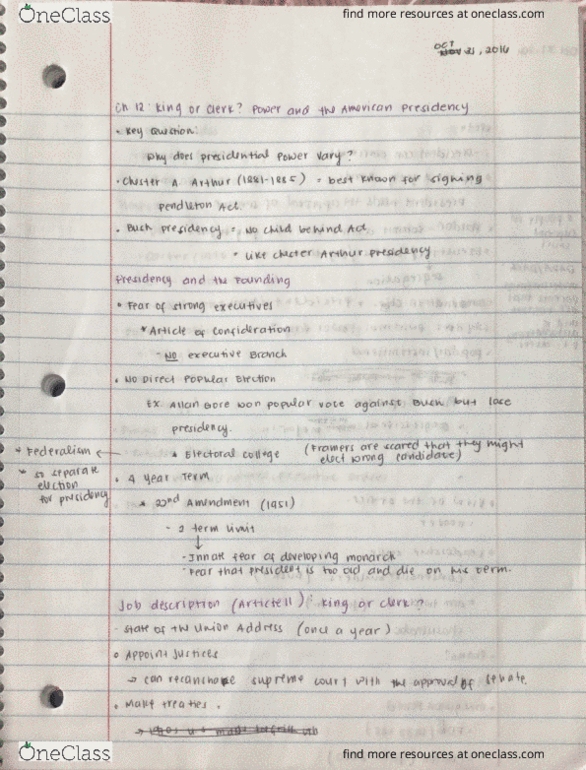 OneClass
find more resources at oneclass.com
OCT
Nov 31, 2016
Ch 12: King or Clerk? Power and the American Presidency
• Key Question:
Why does presidential power vary?
• Chester A. Arthur (1881-1885) = best known for signing
Pendleton Act.
• Bush presidency = No child behind Act
• Like Chester Arthur presidency
Presidency and the Founding
• Fear of strong executives
* Article of Consideration
- NO executive Branch
• No Direct Popular Election
Ex. Allan Gore won popular vote against Bush but lose
presidency.
* Federalism ←
* Electoral college (Framers are scared that they might
elect wrong candidate)
* 51 separate
election
for presidency
• 4 year Term
* 22nd Amendment (1951)
- 2 term limit
↓
- Innate fear of developing monarch
- Fear that president is too old and die on his term.
Job description (Article II): King or Clerk?
- State of the Union Address (once a year)
• Appoint Justices
→ can supreme court with the approval of Senate.
• Make treaties.
OneClass
find more resources at oneclass.com